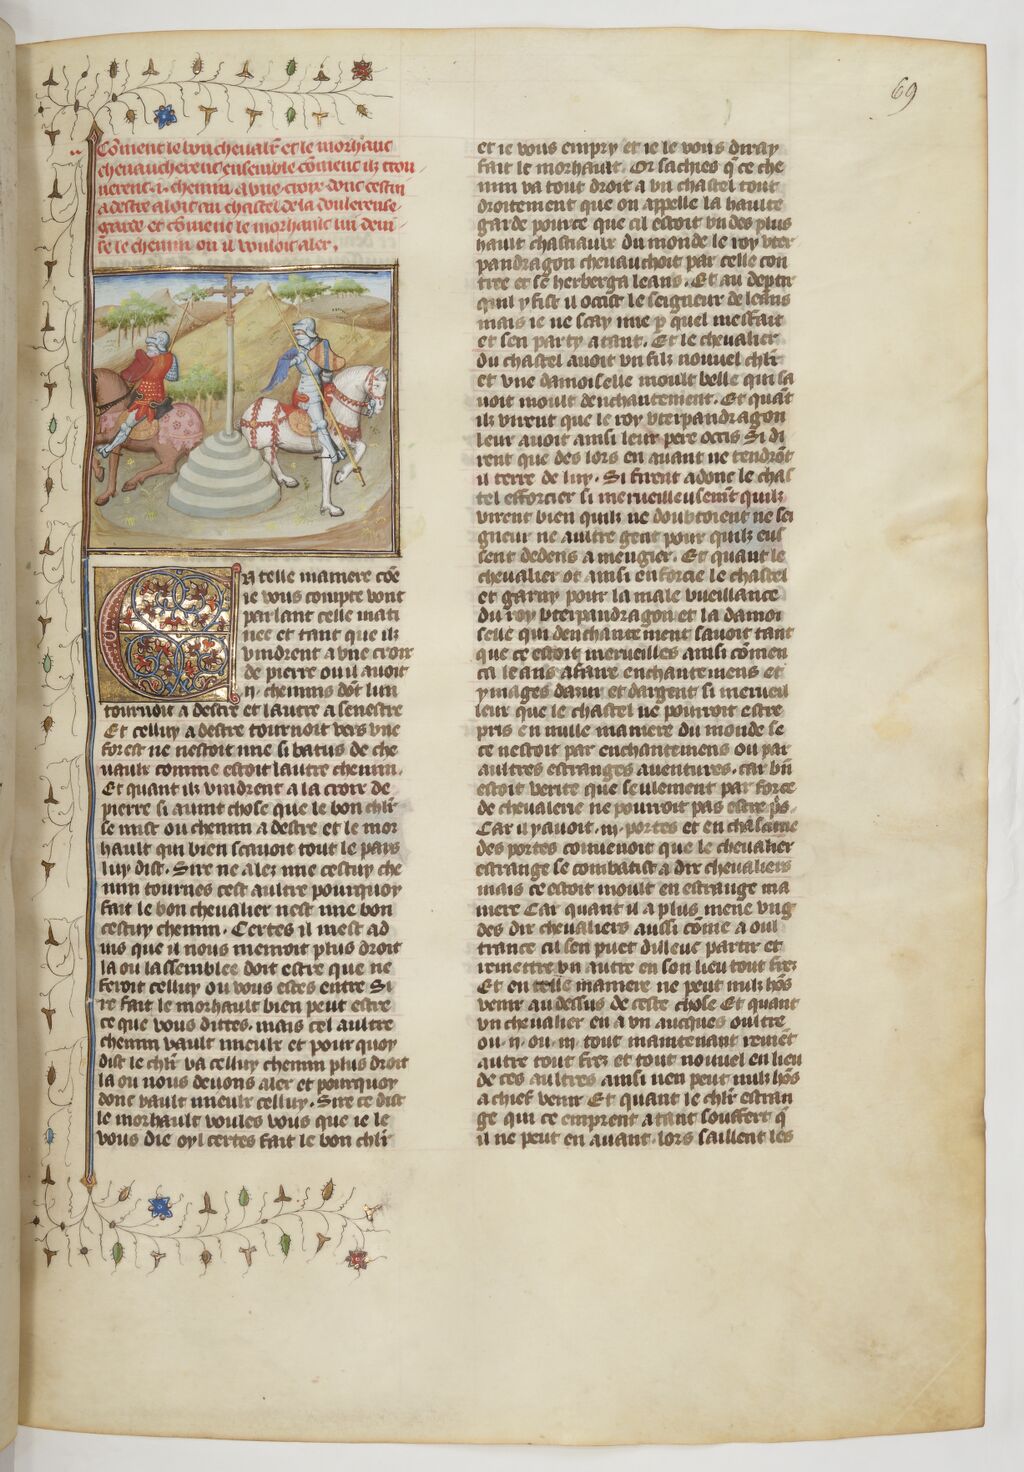 69
Cõment le bon chevalr̃ et le morhaut
chevaucherent ensemble cõment ilz trou
verent .i. chemin a une croix dont cestui
a destre aloit au chastel de la doulereuse
garde et cõment le morhault lui devi
se le chemin ou il vouloit aler.
En telle maniere cõe
ie vous compte vont
parlant celle mati
nee et tant que ilz
vindrent a une croix
de pierre ou il avoit
.ii. chemins dõt lun
tournoit a destre et lautre a senestre
Et celluy a destre tournoit vers une
forest ne nestoit mie si batus de che
vaulx comme estoit lautre chemin.
Et quant ilz vindrent a la croix de
pierre si avint chose que le bon chlr̃
se mist ou chemin a destre et le mor
hault qui bien scavoit tout le pays
luy dist. Sire ne alez mie cestuy che
min tournes cest aultre pourquoy
fait le bon chevalier nest mie bon
cestuy chemin. Certes il mest ad
vis que il nous menroit plus droit
la ou lassemblee doit estre que ne
feroit celluy ou vous estes entre Si
re fait le morhault bien peut estre
ce que vous dittes. mais cel aultre
chemin vault mieulx et pour quoy
dist le chlr̃ va celluy chemin plus droit
la ou nous devons aler et pourquoy
donc vault mieulx celluy. Sire ce dist
le morhault voules vous que ie le
vous die oyl certes fait le bon chlr̃
et ie vous empry et ie le vous diray
fait le morhaut. Or sachies q̃ ce che
min va tout droit a un chastel tout
droitement que on appelle la haulte
garde pource que cil estoit un des plus
hault chastiaulx du monde le roy uter
pandragon chevauchoit par celle con
tree et se herberga leans. Et au deptir
quil y fist il occist le seigneur de leans
mais ie ne scay mie p quel mesfait
et sen party atant. Et le chevalier
du chastel avoit un filz nouvel chlr̃
et une damoiselle moult belle qui sa
voit moult denchantement. Et quãt
ilz virent que le roy uterpandragon
leur avoit ainsi leur pere occis Si di
rent que des lors en avant ne tendrõt
il terre de luy. Si firent adonc le chas
tel efforcier si merveilleusemt̃ quilz
virent bien quilz ne doubtoient ne sei
gneur ne aultre gent pour quilz eus
sent dedens a mengier. Et quant le
chevalier ot ainsi enforcie le chastel
et garny pour la male vueillance
du roy uterpandragon et la damoi
selle qui denchantement savoit tant
que ce estoit merveilles ainsi cõmen
ca leans a faire enchantemens et
ymages daur et dargent si merveil
leux que le chastel ne pourroit estre
pris en nulle maniere du monde se
ce nestoit par enchantemens ou par
aultres estranges aventures. car biñ
estoit verite que seulement par force
de chevalerie ne pourroit pas estre p̃s.
Car il y avoit .iii. portes et en chascune
des portes convenoit que le chevalier
estrange se combatist a dix chevaliers
mais ce estoit moult en estrange ma
niere Car quant il a plus mene ung
des dix chevaliers aussi cõme a oul
trance cil sen puet dilleuc partir et
remettre un autre en son lieu tout frez
Et en telle maniere ne peut nulz hõs
venir au dessus de ceste chose Et quant
un chevalier en a un aucques oultre
ou .ii. ou .iii. tout maintenant reviẽt
autre tout frez et tout nouvel en lieu
de ces aultres ainsi nen peut nulz hõs
a chief venir Et quant le chlr̃ estran
ge qui ce emprent a tant souffert q̃
il ne peut en avant. lors saillent les